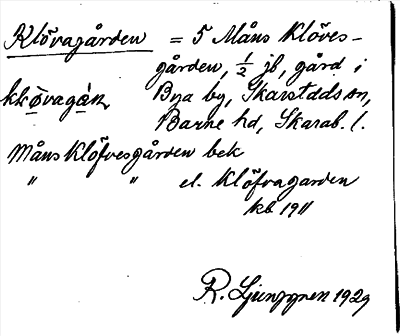 Klövagården = 5 Måns Klöves-
gården, 1/2 jb, gård i
Bya by, Skarstads sn,
Barne hd, Skarab. l.
Måns Klöfvesgården bek
" " el. Klöfvagarden
kb 1911
R. Ljunggren 1929